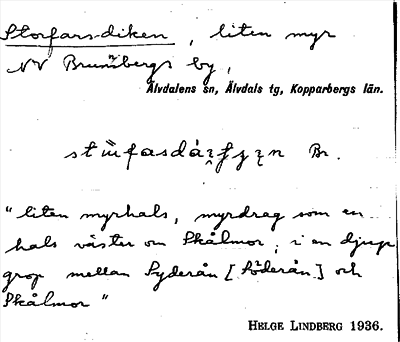 Storfars-diken, liten myr
NV Brunnbergs by,
Älvdalens sn, Älvdals tg, Kopparbergs län.
Br.
"liten myrhals, myrdrag som en
hals väster om Skålmor, i en djup
grop mellan Syderån [Söderån] och
Skålmor"
HELGE LINDBERG 1936.